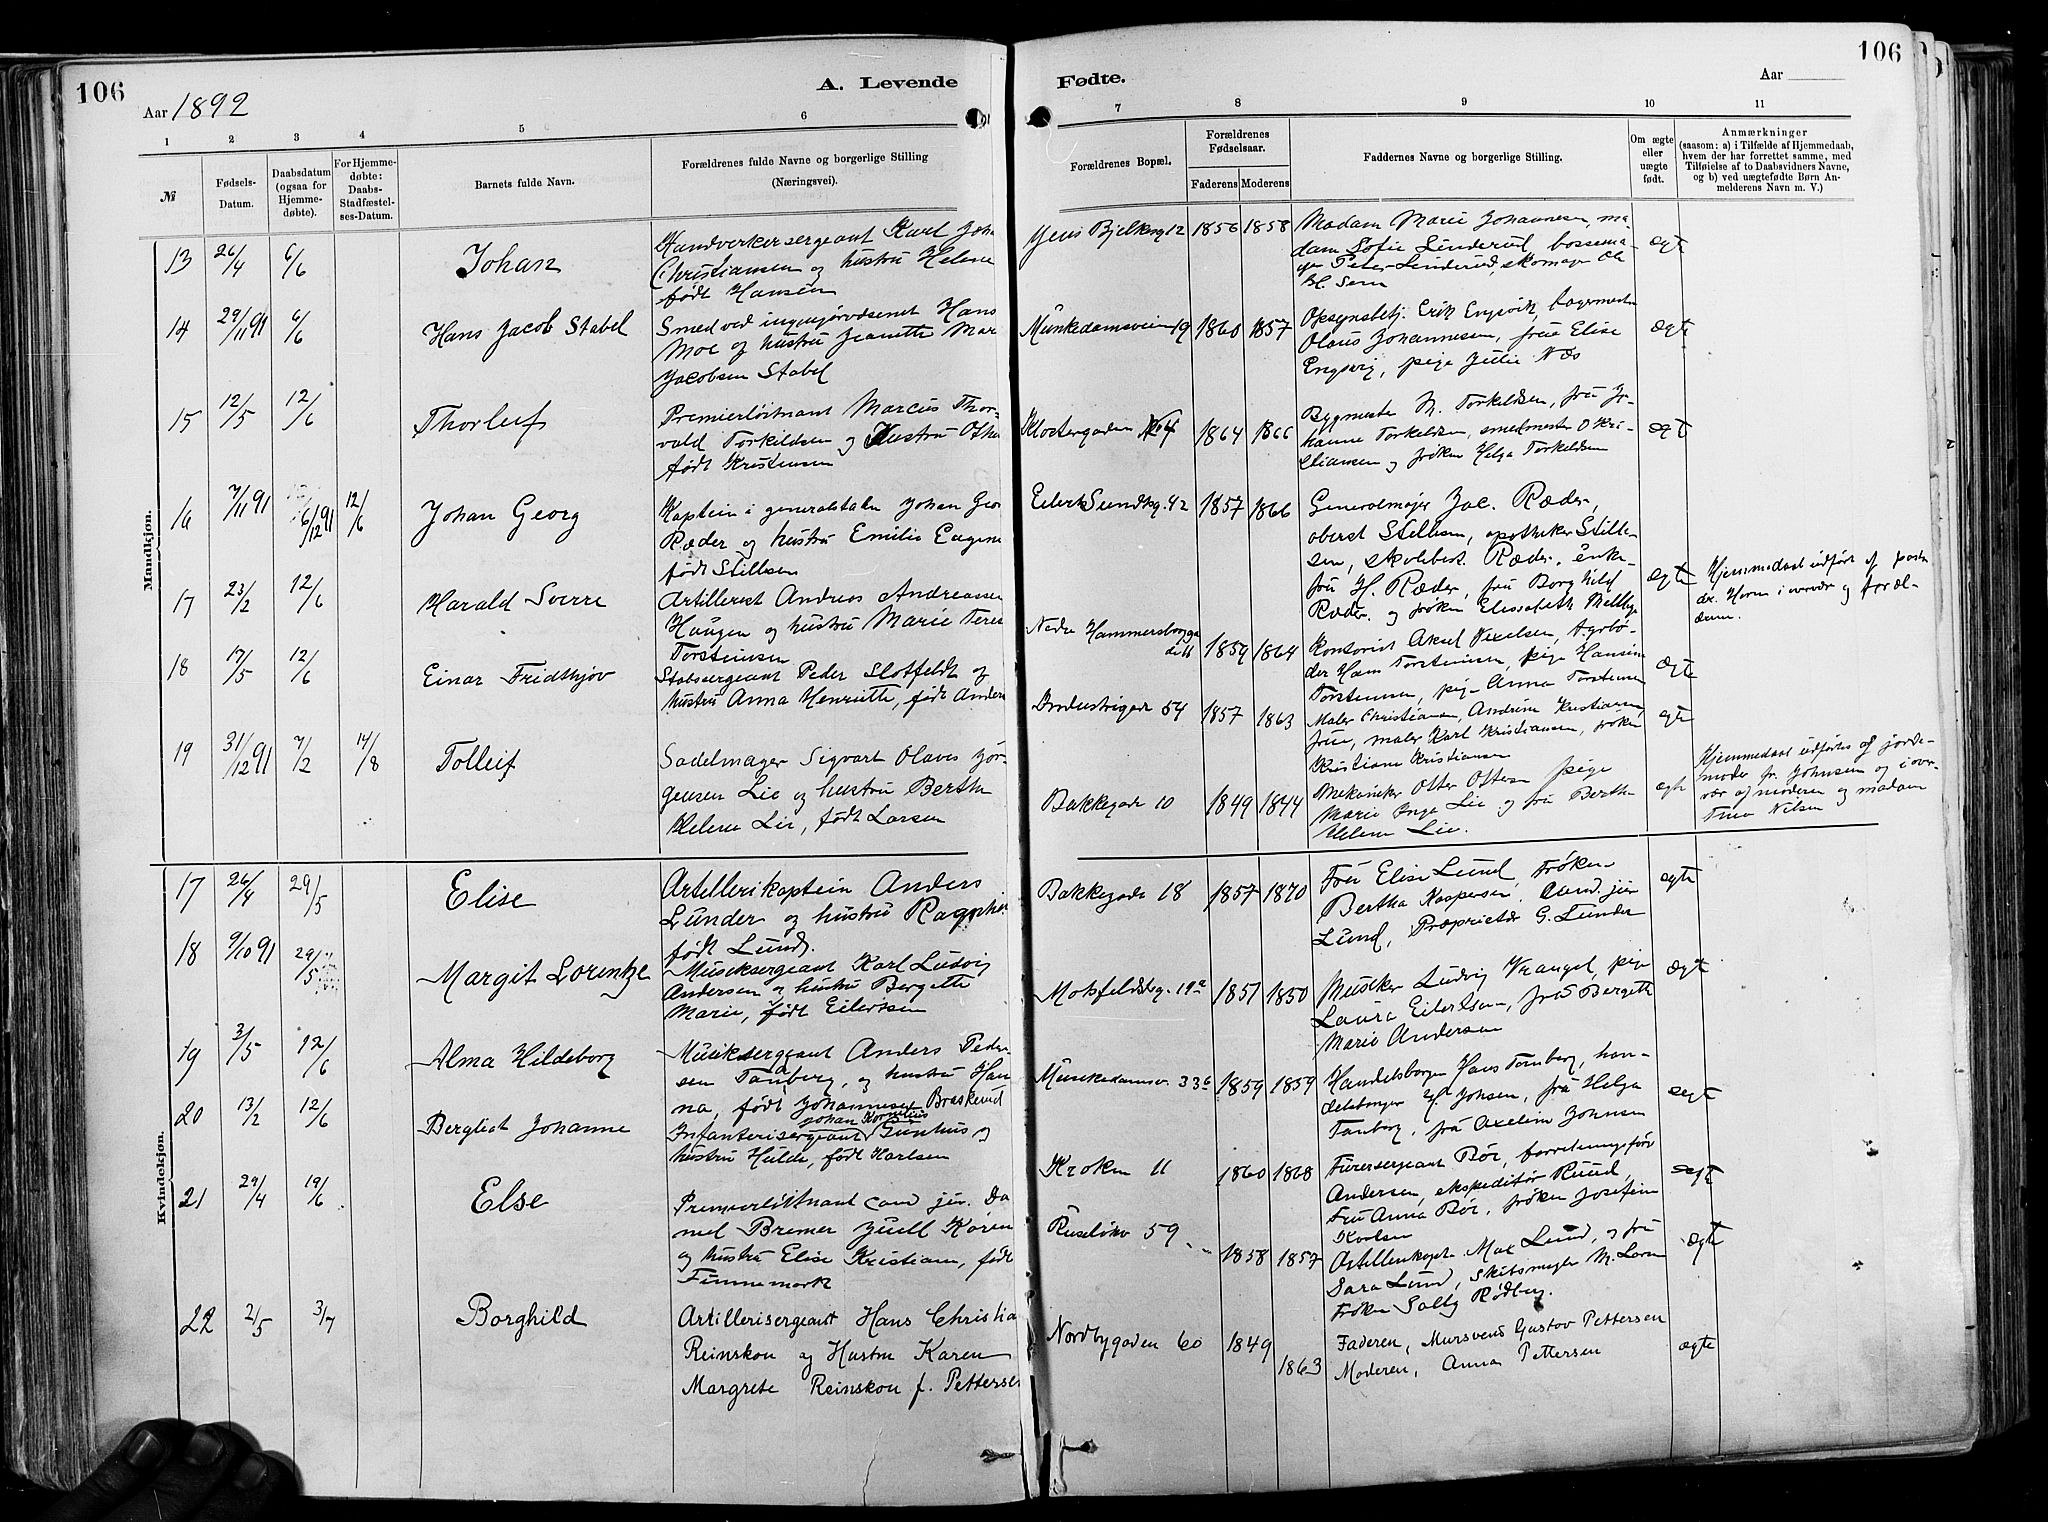 106
A. Levende
Aar 1892
1 2 3 4 5 6
№
Fødsels-
Datum.
Daabsdatum
(ogsaa for
Hjemme-
døbte).
For Hjemme-
døbte:
Daabs-
Stadfæstel-
ses-Datum.
Barnets fulde Navn.
Forældrenes fulde Navne og borgerlige Stilling
(Næringsvei).
Mandkjøn.
13 26/4 6/6 Johan
Handverkersergeant Karl Joha
Christiansen og hustru Helene
født Hansen
14 29/11 91 6/6 Hans Jacob Stabel
Smed ved ingeniørvæsenet Hans
Moe og hustru Jeanette Mar
Jacobsen Stabel
15 12/5 12/6 Thorleif
Premierløitnant Marcus Thor-
vald Torkildsen og Hustru Otha
født Kristensen
16 7/11 91 6/12 91 12/6 Johan Georg
Kaptein i generalstaben Johan Geo
Ræder og hustru Emilie Eugene
født Stillsen
17 23/2 12/6 Harald Sverre
Artillerist Andreas Andreasen
Haugen og hustru Marie Tere
Torstensen
18 17/5 12/6 Einar Fridthjov
Stabssergeant Peder Slotfeldt og
hustru Anna Henriette, født Anders
19 31/12 91 7/2 14/8 Tolleif
Sadelmager Sigvart Olaves Jør-
gensen Lie og hustru Bertha
Helene Lie, født Larsen
Kvindekjøn.
17 26/4 29/5 Elise
Artillerikaptein Anders
Lunder og hustru Ragnhi
født Lund.
18 9/10 91 29/5 Margit Lorentze
Musiksergeant Karl Ludvig
Andersen og hustru Bergette
Marie, født Eilertsen
19 3/5 12/6 Alma Hildeborg
Musiksergeant Anders Peder-
sen Tanberg, og hustru Han
na, født Johannesen Braskerud
20 13/2 12/6 Bergliot Johanne
Johan Kornelius
Infanterisergeant Gunhus og
hustru Hulda, født Karlsen
21 29/4 19/6 Else
Premierløitnant cand. jur. Da
niel Bremer Juell Koren
og hustru Elise Kristiane, født
Finnemark
22 2/5 3/7 Borghild
Artillerisergeant Hans Christia
Reinskou og Hustru Karen
Margrete Reinskou f. Petterse
Fødte.
Aar
106
7 8 9 10 11
Forældrenes Bopæl.
Forældrenes
Fødselsaar.
Faderens Moderens
Faddernes Navne og borgerlige Stilling.
Om ægte
eller
uægte
født.
Anmærkninger
(saasom: a) i Tilfælde af Hjemmedaab,
hvem der har forrettet samme, med
Tilføielse af to Daabsvidners Navne,
og b) ved uægtefødte Børn An-
melderens Navn m. V.)
Jens Bjelkesg 12 1856 1858
Madam Marie Johannesen, ma-
dam Sofie Linderud, bøssema-
ger Peter Linderud, skomager Ole
ægte
Munkedamsveien 19 1860 1857
Opsynsbetj. Erik Engsvik, bagermester
Olaus Johannesen, frue Elise
Engsvig, pige Julie Næs
ægte
Klostergaden 64 1864 1866
Bygmester M. Torkildsen, fru Jo-
hanne Torkeldsen, smedmester O Kri-
stiansen og frøken Helga Torkeldsen
ægte
Eilert Sundtsg. 42 1857 1866
Generalmajor Jac. Ræder,
oberst Stillsen, apotheker Still-
sen, skolebest. Ræder, enke-
fru H. Ræder, fru Borghild
Ræder og frøken Elisabeth
ægte
Hjemmedaab udført af pastor
Horn i overvær og foræl-
drene.
Nedre Hammersborggade 11 1859 1864
Kontorist Aksel Nielsen, Agrbø-
der Hans Torstensen, pige Hansine
Torstensen, pige Anna Torstensen
ægte
Industrigade 54 1857 1863
Maler Christiansen, Andrine Kristiansen
frue, maler Karl Kristiansen, frøken
Kristiane Kristiansen
ægte
Bakkegade 10 1849 1844
Mekaniker Otter Ottesen pige
Marie Inga Lie og fru Bertha
Helene Lie.
ægte
Hjemmedaab udførtes af jorde-
moder fr. Johnsen og i over-
vær af moderen og madam
Tina Nilsen
Bakkegade 18 1857 1870
Fru Elise Lund, Frøken
Bertha Kaspersen, Cand. jur
Lund, Proprietær G. Lunder
ægte
Motzfeldtsg. 19a 1851 1850
Musiker Ludvig Vrangel, pige
Laura Eilertsen, fru Bergette
Marie Andersen
ægte
Munkedamsv. 33b 1859 1859
Handelsborger Hans Tanberg, han-
delsborger Johsen, fru Helga
Tanberg, fru Axeline Johnsen
ægte
Kroken 11 1860 1868
Furersergeant Bör, forretningsfører
Andersen, ekspeditør Ruud,
Fru Anna Bör, frøken Josefine
Karlsen
ægte
Ruseløkv 59 1858 1857
Artillerikapt. Max Lund, og fru
Sara Lund, Skibsmægler M. Loren
Frøken Salby Rødberg.
ægte
Nordbygaden 60 1849 1863
Faderen, Mursvend Gustav Pettersen
Moderen, Anna Pettersen
ægte